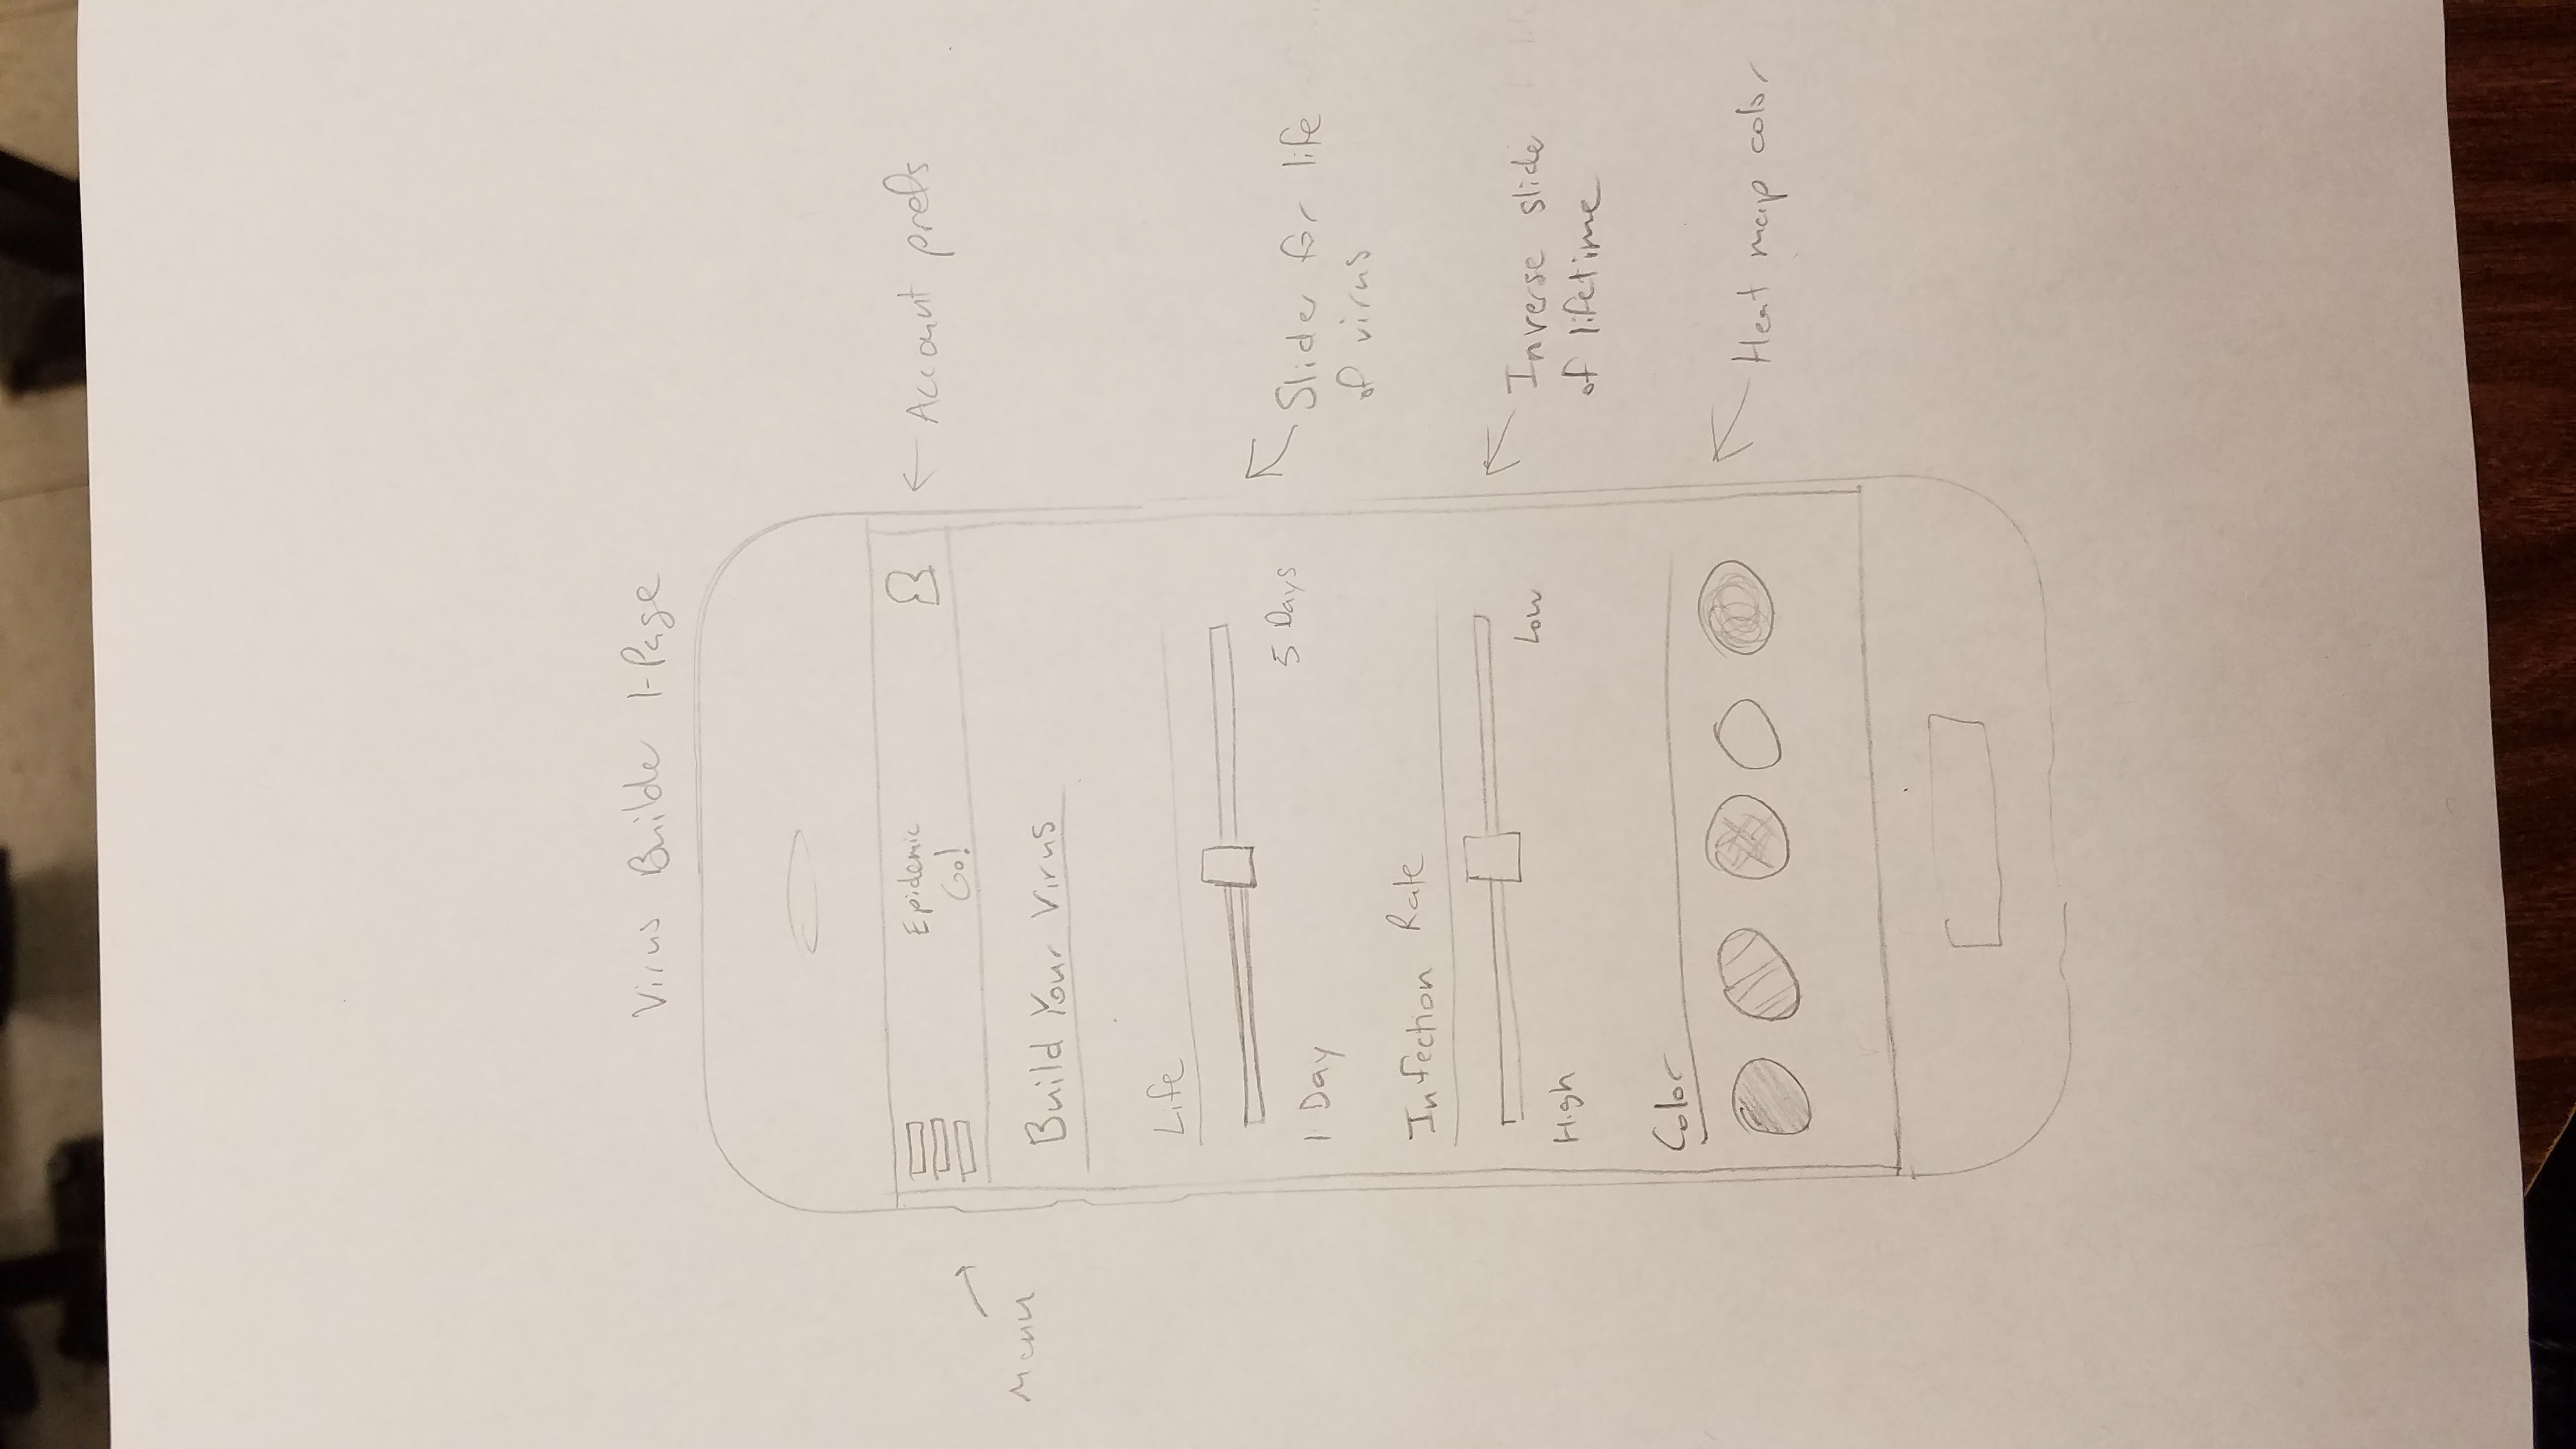 Virus Builder 1-Page
Epidemic
Go!
Account prefs
Menu
Build Your Virus
Life
1 Day
5 Days
Slider for life
of virus
Infection Rate
High
Low
Inverse slide
of lifetime
Color
Heat map color